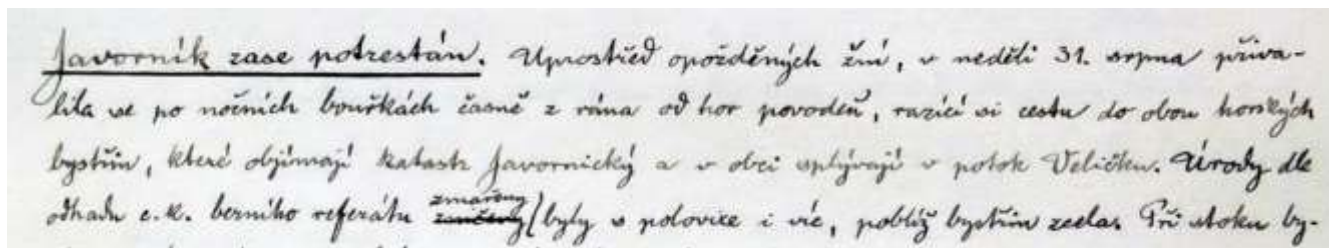 Javorník zase potrestán. Uprostřed opožděných žní, v neděli 31. srpna přiva-
lila se po nočních bouřkách časně z rána od hor povodeň, razící si cestu do obou horských
bystřin, které objímají katastr Javornický a v obci splývají v potok Veličku. Úrody dle
odhadu c. k. berního referátu zmařeny byly s polovice i víc, poblíž bystřin zcela. Při stoku by-